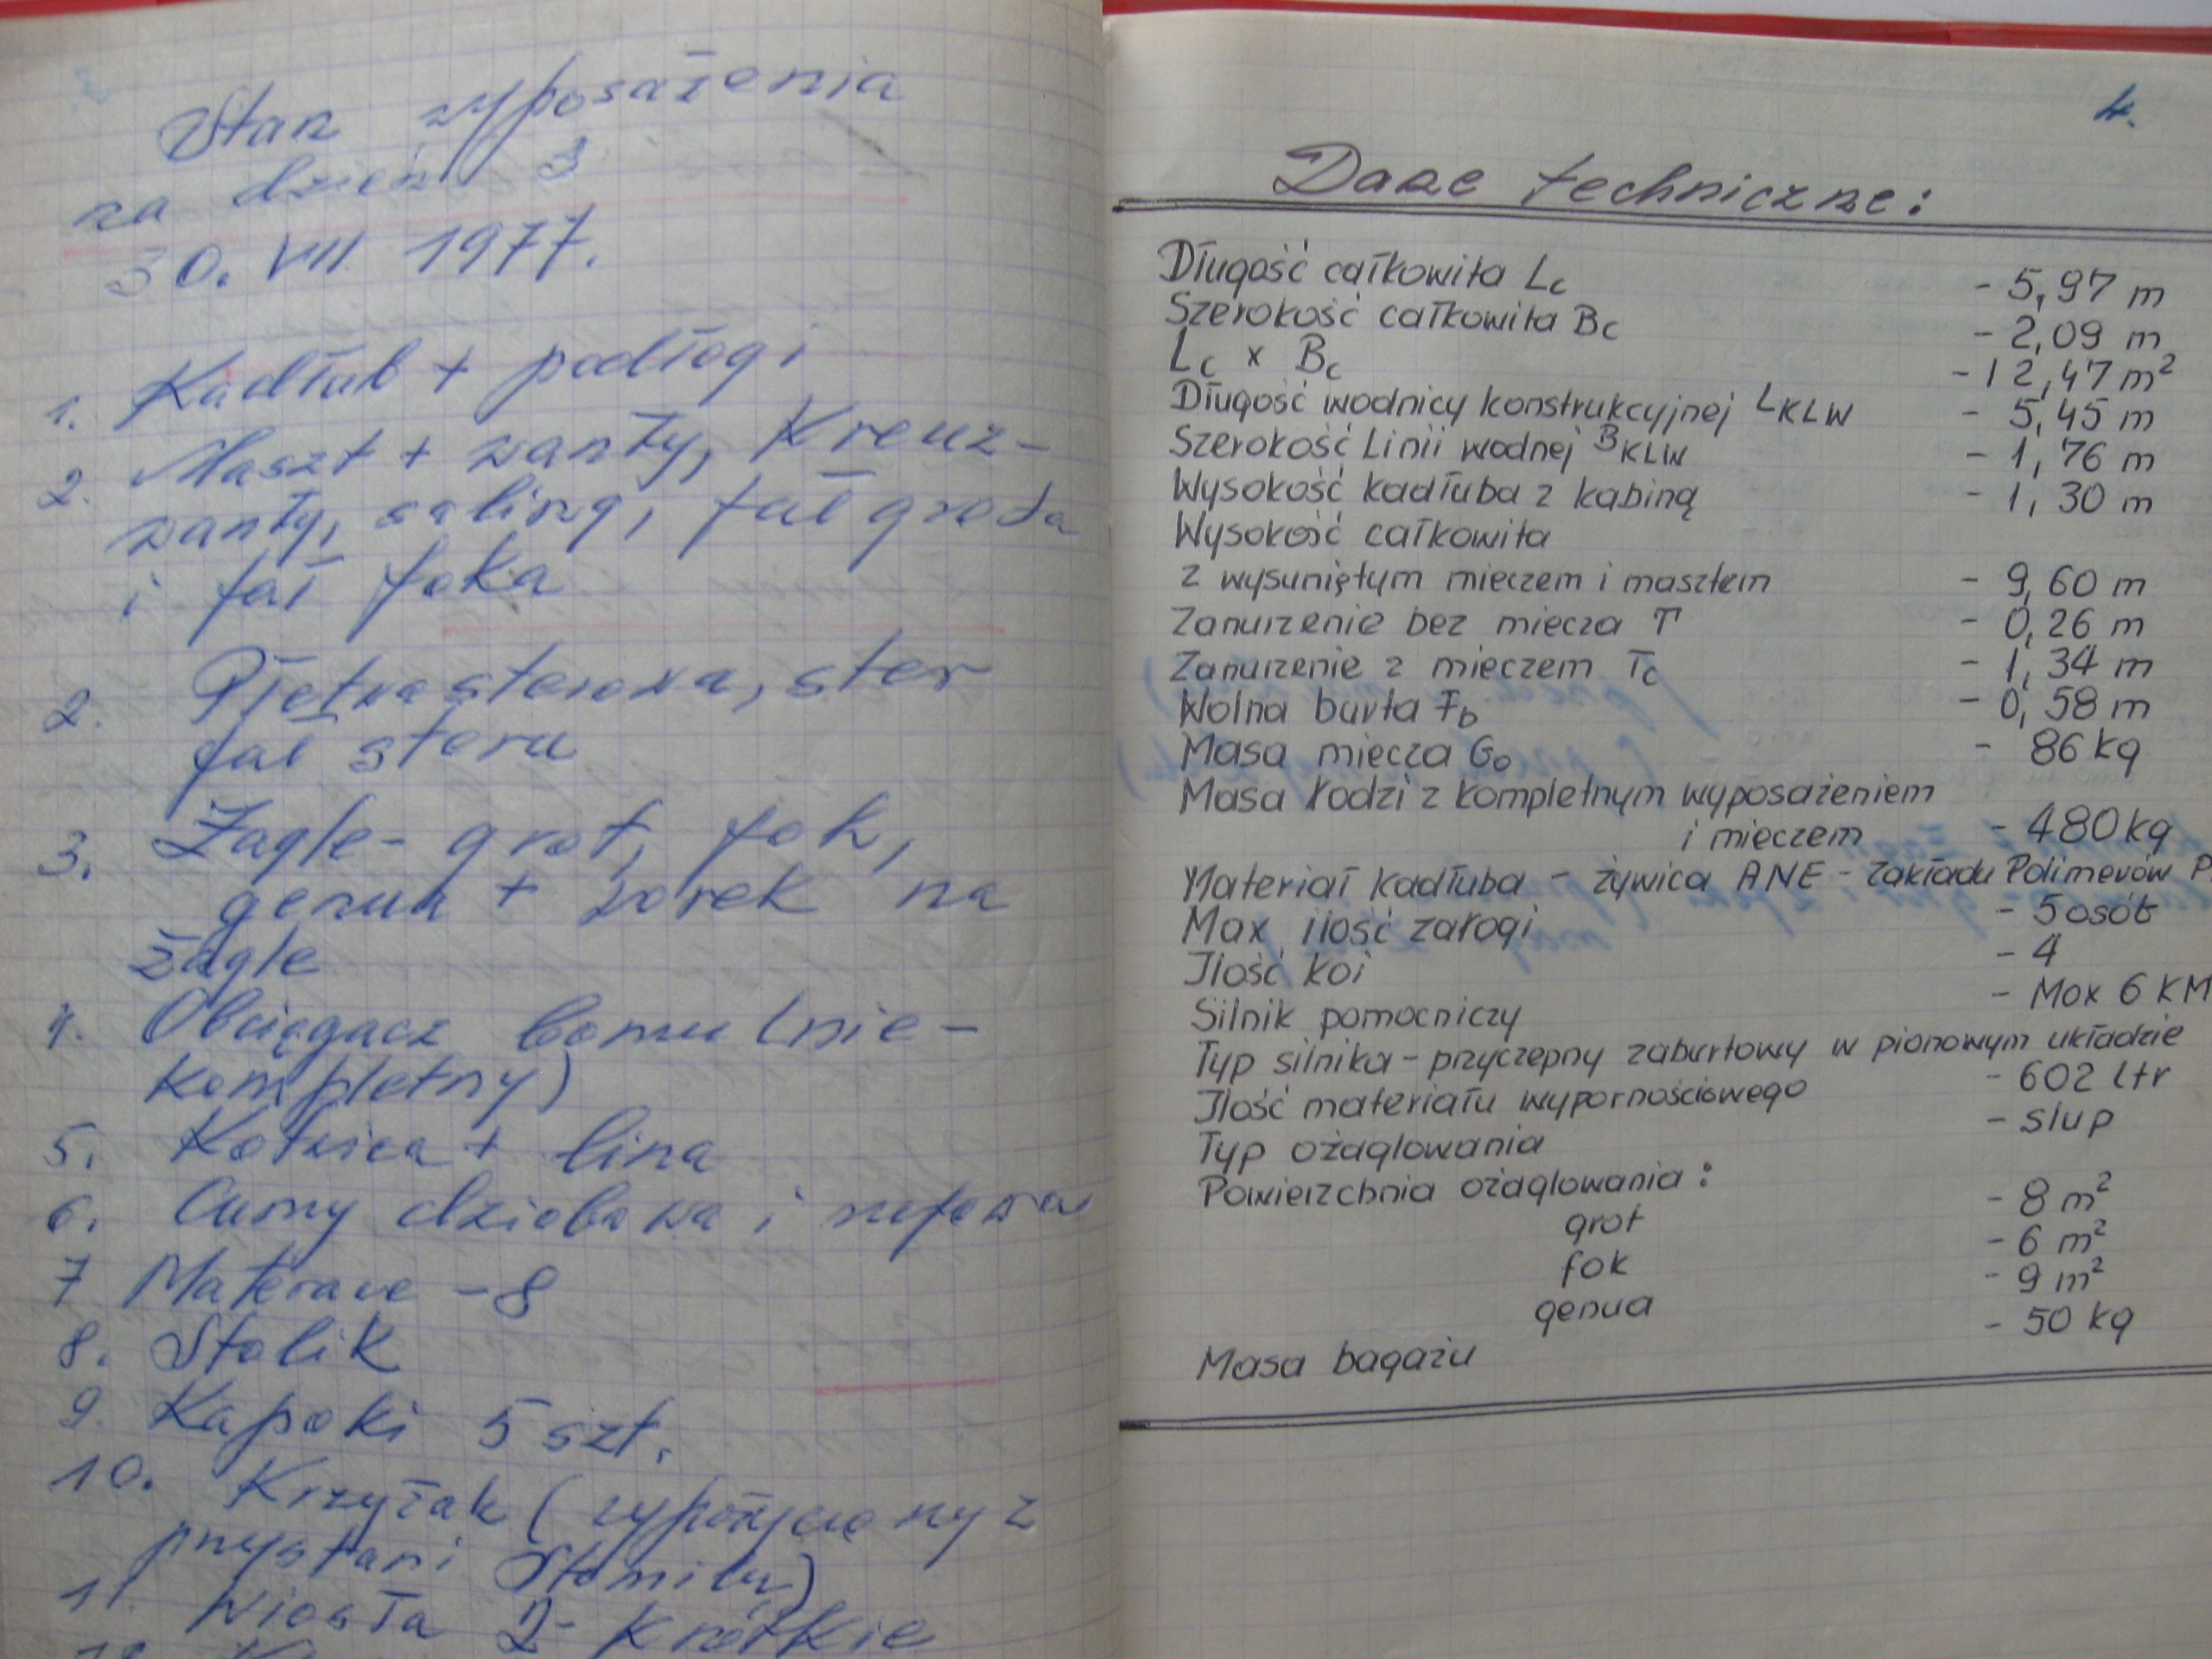 Stan wyposażenia
na dzień 3
30. VII 1977.
1. Kadłub + podłogi
2. Maszt + wanty, Kreuz-
wanty, saling, fał grota
i fał foka
2. Płetwa sterowa, ster
fał steru
3. Żagle - grot, fok,
genua + worek na
żagle
4. Obciągacz bomu (nie-
kompletny)
5. Kotwica + lina
6. Cumy dziobowa i rufowa
7 Materace - 8
8. Stolik
9. Kapoki 5 szt.
10. Krzyżak (wypożyczony z
przystani Stomilu)
11. Wiosła 2 - krótkie
4.
Dane techniczne:
Długość całkowita Lc - 5,97 m
Szerokość całkowita Bc - 2,09 m
Lc x Bc - 12,47 m²
Długość wodnicy konstrukcyjnej LKLW - 5,45 m
Szerokość Linii wodnej BKLW - 1,76 m
Wysokość kadłuba z kabiną - 1,30 m
Wysokość całkowita
z wysuniętym mieczem i masztem - 9,60 m
Zanurzenie bez miecza T - 0,26 m
Zanurzenie z mieczem Tc - 1,34 m
Wolna burta Fb - 0,58 m
Masa miecza Go - 86 kg
Masa łodzi z kompletnym wyposażeniem
i mieczem - 480 kg
Materiał kadłuba - żywica ANE - Zakładu Polimerów P.
Max ilość załogi - 5 osób
Jlość koi - 4
Silnik pomocniczy - Max 6 KM
Typ silnika - przyczepny zaburtowy w pionowym układzie
Jlość materiału wypornościowego - 602 ltr
Typ ożaglowania - slup
Powierzchnia ożaglowania:
grot - 8 m²
fok - 6 m²
genua - 9 m²
Masa bagażu - 50 kg